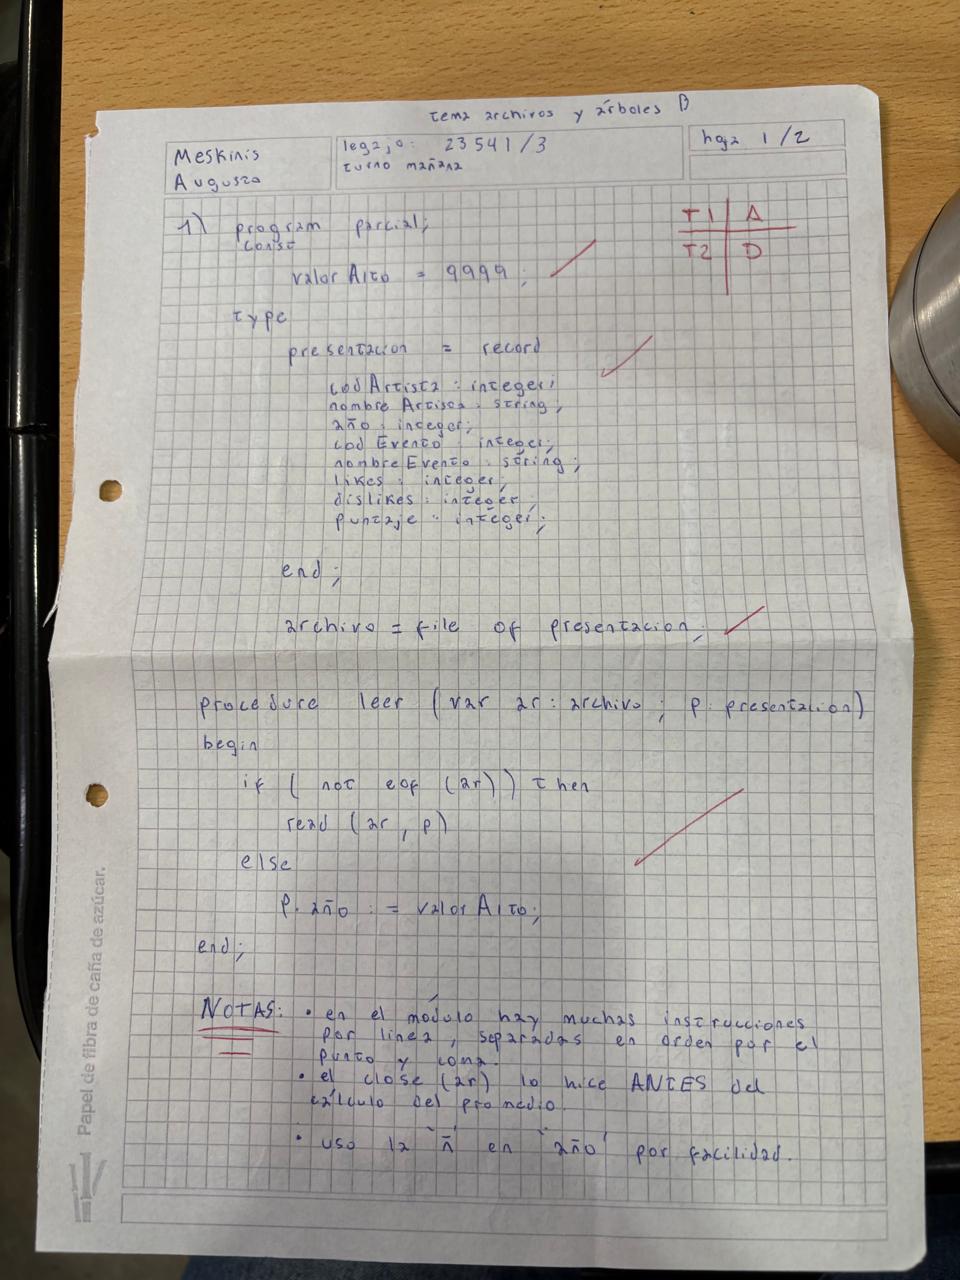 tema archivos y árboles B
Meskinis
Augusto
legajo: 23541/3
turno mañana
hoja 1/2
T1 A
T2 D
1) program parcial;
const
valorAlto = 9999;
type
presentacion = record
codArtista : integer;
nombreArtista : string;
año : integer;
codEvento : integer;
nombreEvento : string;
likes : integer;
dislikes : integer;
puntaje : integer;
end;
archivo = file of presentacion;
procedure leer (var ar : archivo ; p : presentacion)
begin
if ( not eof (ar)) then
read (ar, p)
else
p. año := valorAlto;
end;
NOTAS: • en el módulo hay muchas instrucciones
por linea, separadas en orden por el
punto y coma.
• el close (ar) lo hice ANTES del
cálculo del promedio.
• uso la 'ñ' en 'año' por facilidad.
Papel de fibra de caña de azúcar.